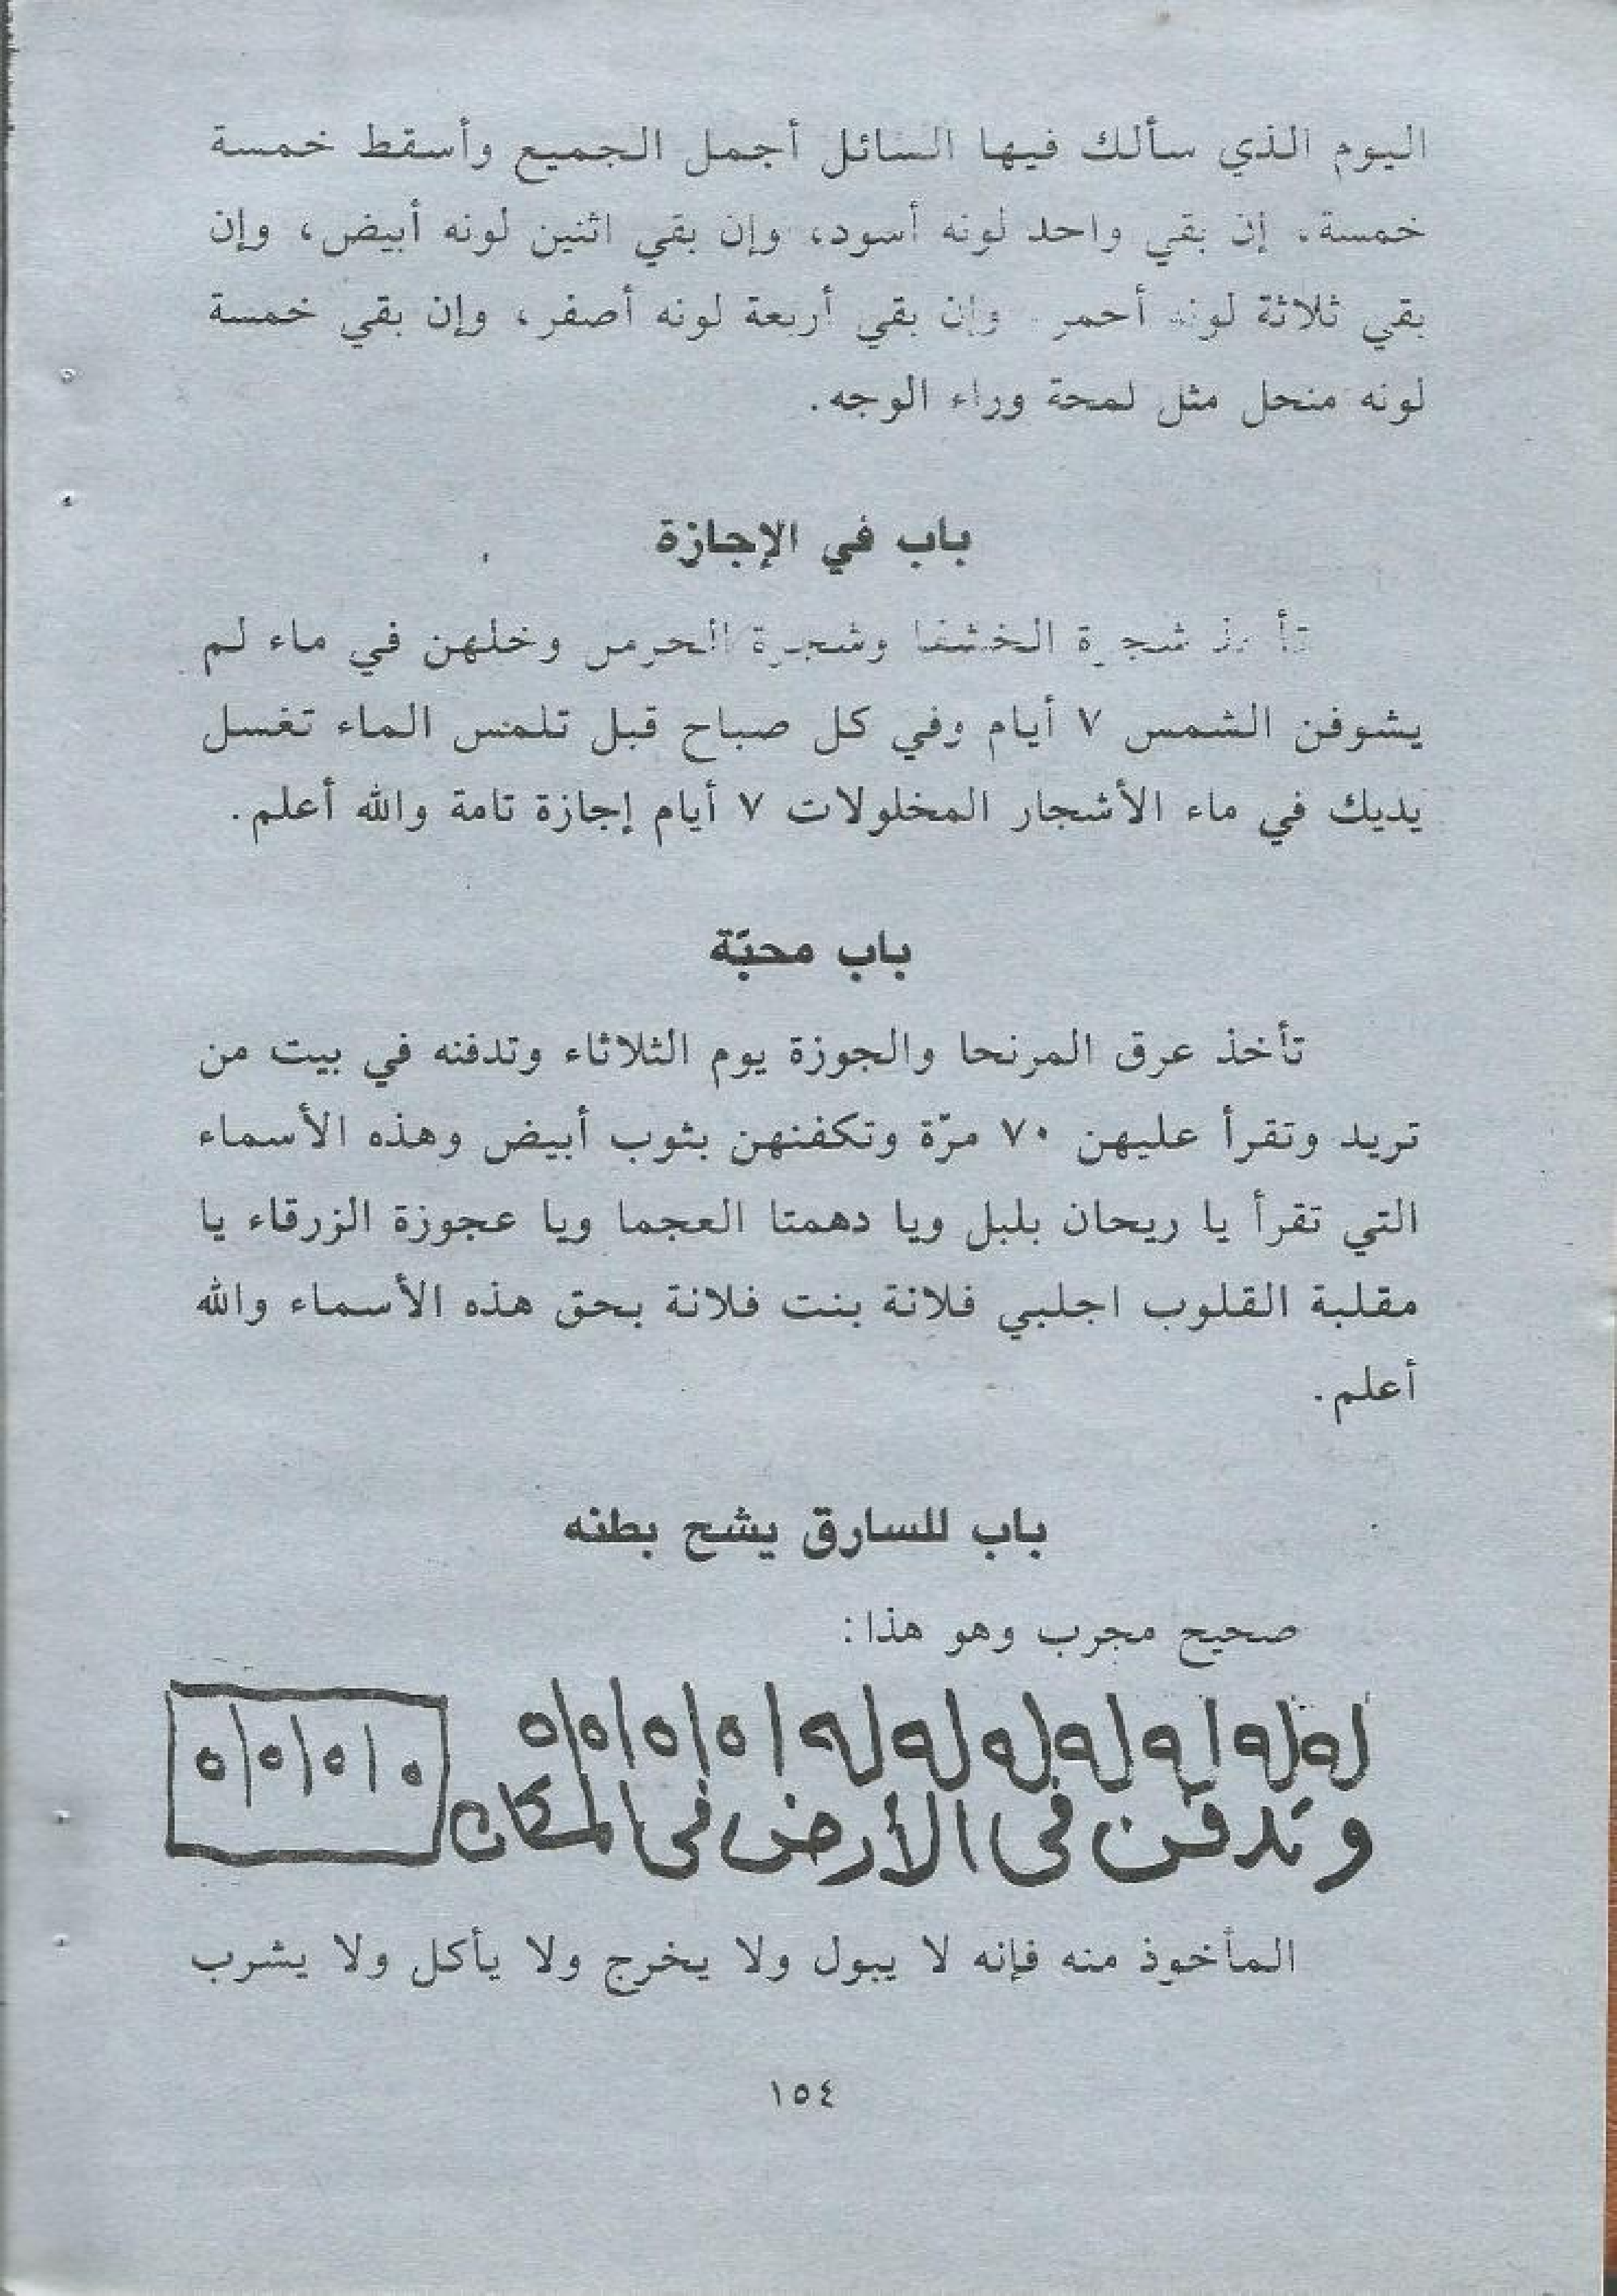 اليوم الذي سألك فيها السائل أجمل الجميع وأسقط خمسة
خمسة، إن بقي واحد لونه أسود، وإن بقي اثنين لونه أبيض، وإن
بقي ثلاثة لونه أحمر وإن بقي أربعة لونه أصفر، وإن بقي خمسة
لونه منحل مثل لمحة وراء الوجه.
باب في الإجازة
تأخذ شجرة الخشفا وشجرة الحرمر وخلهن في ماء لم
يشوفن الشمس ٧ أيام وفي كل صباح قبل تلمس الماء تغسل
يديك في ماء الأشجار المخلولات ٧ أيام إجازة تامة والله أعلم.
باب محبّة
تأخذ عرق المرنحا والجوزة يوم الثلاثاء وتدفنه في بيت من
تريد وتقرأ عليهن ٧٠ مرّة وتكفنهن بثوب أبيض وهذه الأسماء
التي تقرأ يا ريحان بلبل ويا دهمتا العجما ويا عجوزة الزرقاء يا
مقلبة القلوب اجلبي فلانة بنت فلانة بحق هذه الأسماء والله
أعلم.
باب للسارق يشح بطنه
صحيح مجرب وهو هذا:
وتدفن في الأرض في المكان
المأخوذ منه فإنه لا يبول ولا يخرج ولا يأكل ولا يشرب
١٥٤